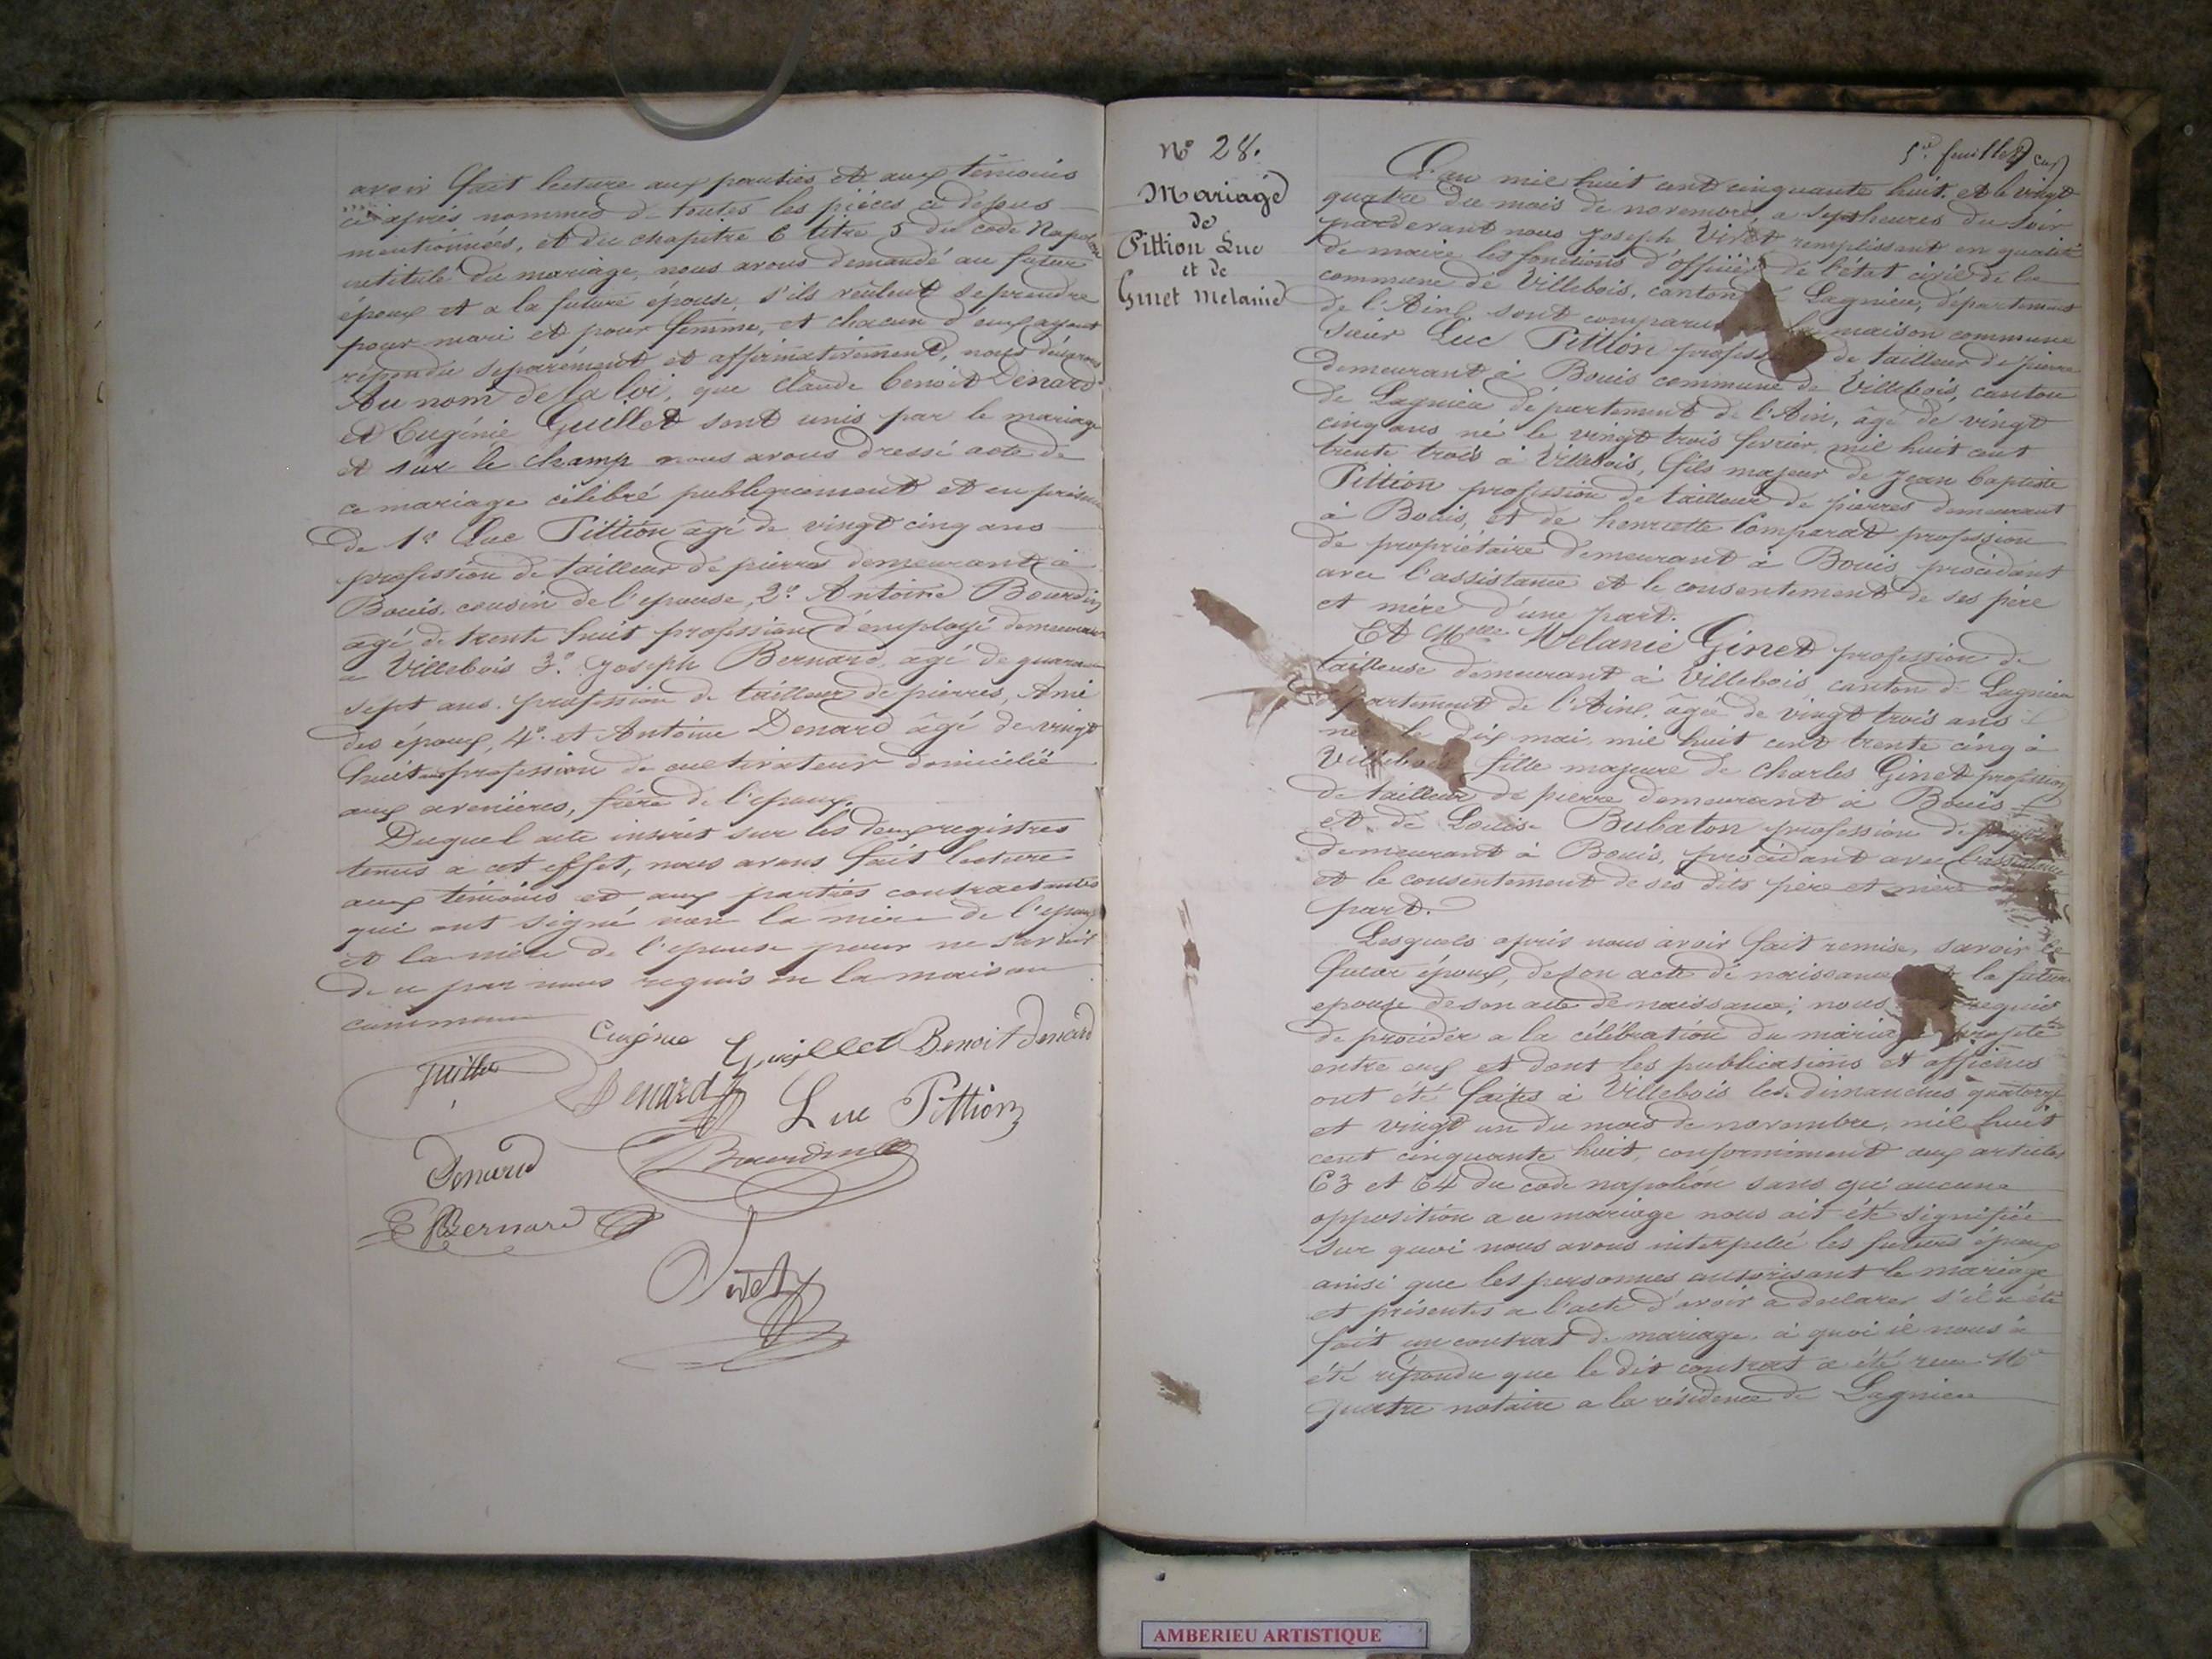 avoir fait lecture aux parties et aux témoins
ci après nommés de toutes les pièces ci dessus
mentionnées, et du chapitre 6 titre 5 du code Napoléon
intitulé du mariage, nous avons demandé au futur
époux et a la future épouse, s'ils veulent se prendre
pour mari et pour femme, et chacun d'eux ayant
répondu séparément et affirmativement, nous déclarons
Au nom de la loi, que Claude benoit Denard
et Eugénie Guillet sont unis par le mariage
et sur le champ nous avons dressé acte de
ce mariage célébré publiquement et en présence
de 1º Luc Pittion âgé de vingt cinq ans
profession de tailleur de pierres demeurant à
Bouis, cousin de l'epouse, 2º Antoine Bourdin
agé de trente huit profession d'employé demeurant
a Villebois 3º Joseph Bernard, agé de quarante
sept ans. profession de tailleur de pierres, Ami
des époux, 4º et Antoine Denard âgé de vingt
huit ans profession de cultivateur domicilié
aux avenières, frère de l'époux.
Duquel acte inscrit sur les deux registres
tenus a cet effet, nous avons fait lecture
aux témoins et aux parties contractantes
qui ont signé non la mère de l'epoux
et la mère de l'epouse pour ne savoir
de ce par nous requis en la maison
commune
Eugénie Guillet Benoit Denard
Guillet
Denard Luc Pittion
Denard Bourdin
Bernard
Viret
Nº 28.
Mariage
de
Pittion Luc
et de
Ginet Melanie
feuillet
L'an mil huit cent cinquante huit. et le vingt
quatre du mois de novembre, a sept heures du soir
pardevant nous Joseph Viret remplissant en qualité
de maire les fonctions d'officier de l'état civil de la
commune de Villebois, canton de Lagnieu, département
de l'Ain, sont comparus maison commune
Sieur Luc Pittion profession de tailleur de pierre
demeurant à Bouis commune de Villebois, canton
de Lagnieu département de l'Ain, âgé de vingt
cinq ans né le vingt trois fevrier, mil huit cent
trente trois à Villebois, fils majeur de Jean baptiste
Pittion profession de tailleur de pierres demeurant
à Bouis, et de henriette Comparat profession
de propriétaire demeurant à Bouis, procédant
avec l'assistance et le consentement de ses père
et mère d'une part.
Et Melle Melanie Ginet profession de
tailleuse demeurant à Villebois, canton de Lagnieu
département de l'Ain, âgée de vingt trois ans
née le dix mai, mil huit cent trente cinq à
Villebois fille majeure de Charles Ginet profession
de tailleur de pierre demeurant à Bouis
et de Louise Bubaton profession de
demeurant à Bouis, procédant avec l'assistance
et le consentement de ses dits père et mère
part.
Lesquels après nous avoir fait remise, savoir le
futur époux, de son acte de naissance la future
epouse de son acte de naissance; nous requis
de procéder a la célébration du mariage projeté
entre eux et dont les publications et affiches
ont été faites à Villebois les dimanches quatorze
et vingt un du mois de novembre, mil huit
cent cinquante huit, conformément aux articles
63 et 64 du code napoléon sans qu'aucune
opposition a ce mariage nous ait été signifiée
sur quoi nous avons interpellé les futurs époux
ainsi que les personnes autorisant le mariage
et présentes a l'acte d'avoir a declarer s'il a été
fait un contrat de mariage, à quoi il nous a
été répondu que le dit contrat a été reçu Me
quatre notaire a la résidence de Lagnieu
AMBERIEU ARTISTIQUE